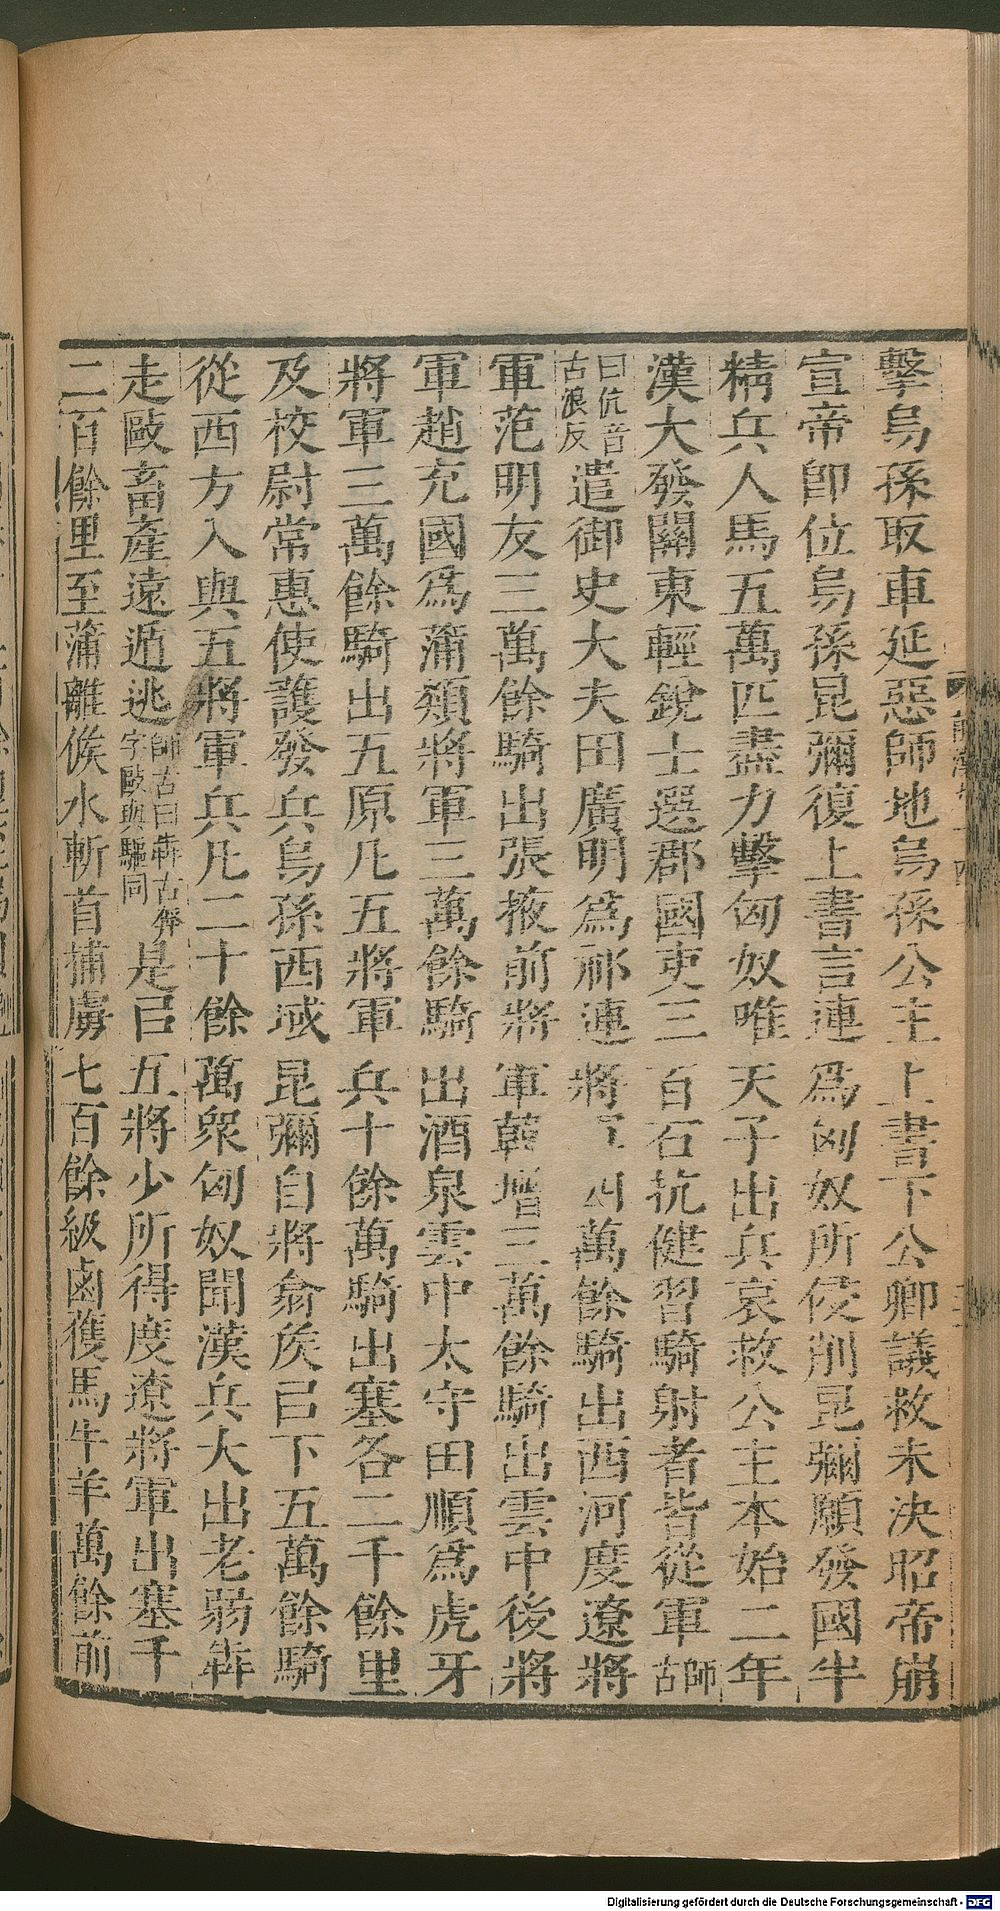 擊烏孫取車延惡師地烏孫公主上書下公卿議救未決昭帝崩
宣帝卽位烏孫昆彌復上書言連爲匈奴所侵削昆彌願發國半
精兵人馬五萬匹盡力擊匈奴唯天子出兵哀救公主本始二年
漢大發關東輕銳士選郡國吏三百石伉健習騎射者皆從軍師古
曰伉音古浪反遣御史大夫田廣明爲祁連將四萬餘騎出西河度遼將
軍范明友三萬餘騎出張掖前將軍韓增三萬餘騎出雲中後將
軍趙充國爲蒲類將軍三萬餘騎出酒泉雲中太守田順爲虎牙
將軍三萬餘騎出五原凡五將軍兵十餘萬騎出塞各二千餘里
及校尉常惠使護發兵烏孫西域昆彌自將翕侯㠯下五萬餘騎
從西方入與五將軍兵凡二十餘萬衆匈奴聞漢兵大出老弱犇
走敺畜產遠遁逃師古曰犇古奔字敺與驅同是㠯五將少所得度遼將軍出塞千
二百餘里至蒲離候水斬首捕虜七百餘級鹵獲馬牛羊萬餘前
Digitalisierung gefördert durch die Deutsche Forschungsgemeinschaft - DFG